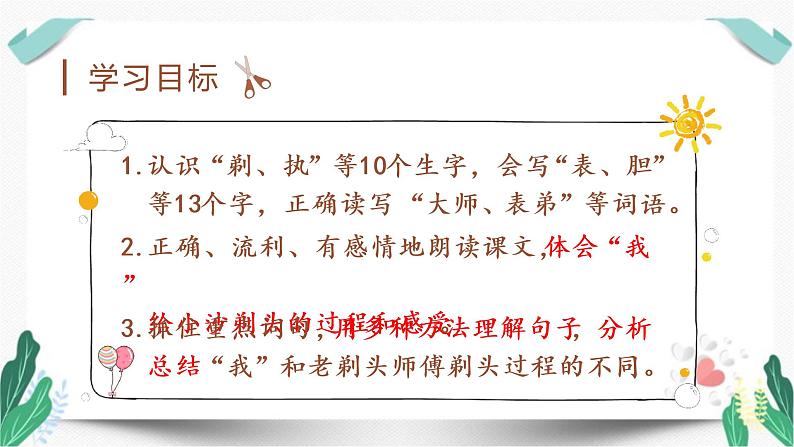 学习目标
1.认识“剃、执”等10个生字，会写“表、胆”
等13个字，正确读写“大师、表弟”等词语。
2.正确、流利、有感情地朗读课文，体会“我
”
给小沙剃头的过程和感受。
3.抓住重点词句，用多种办法理解句子，分析
总结“我”和老剃头师傅剃头过程的不同。